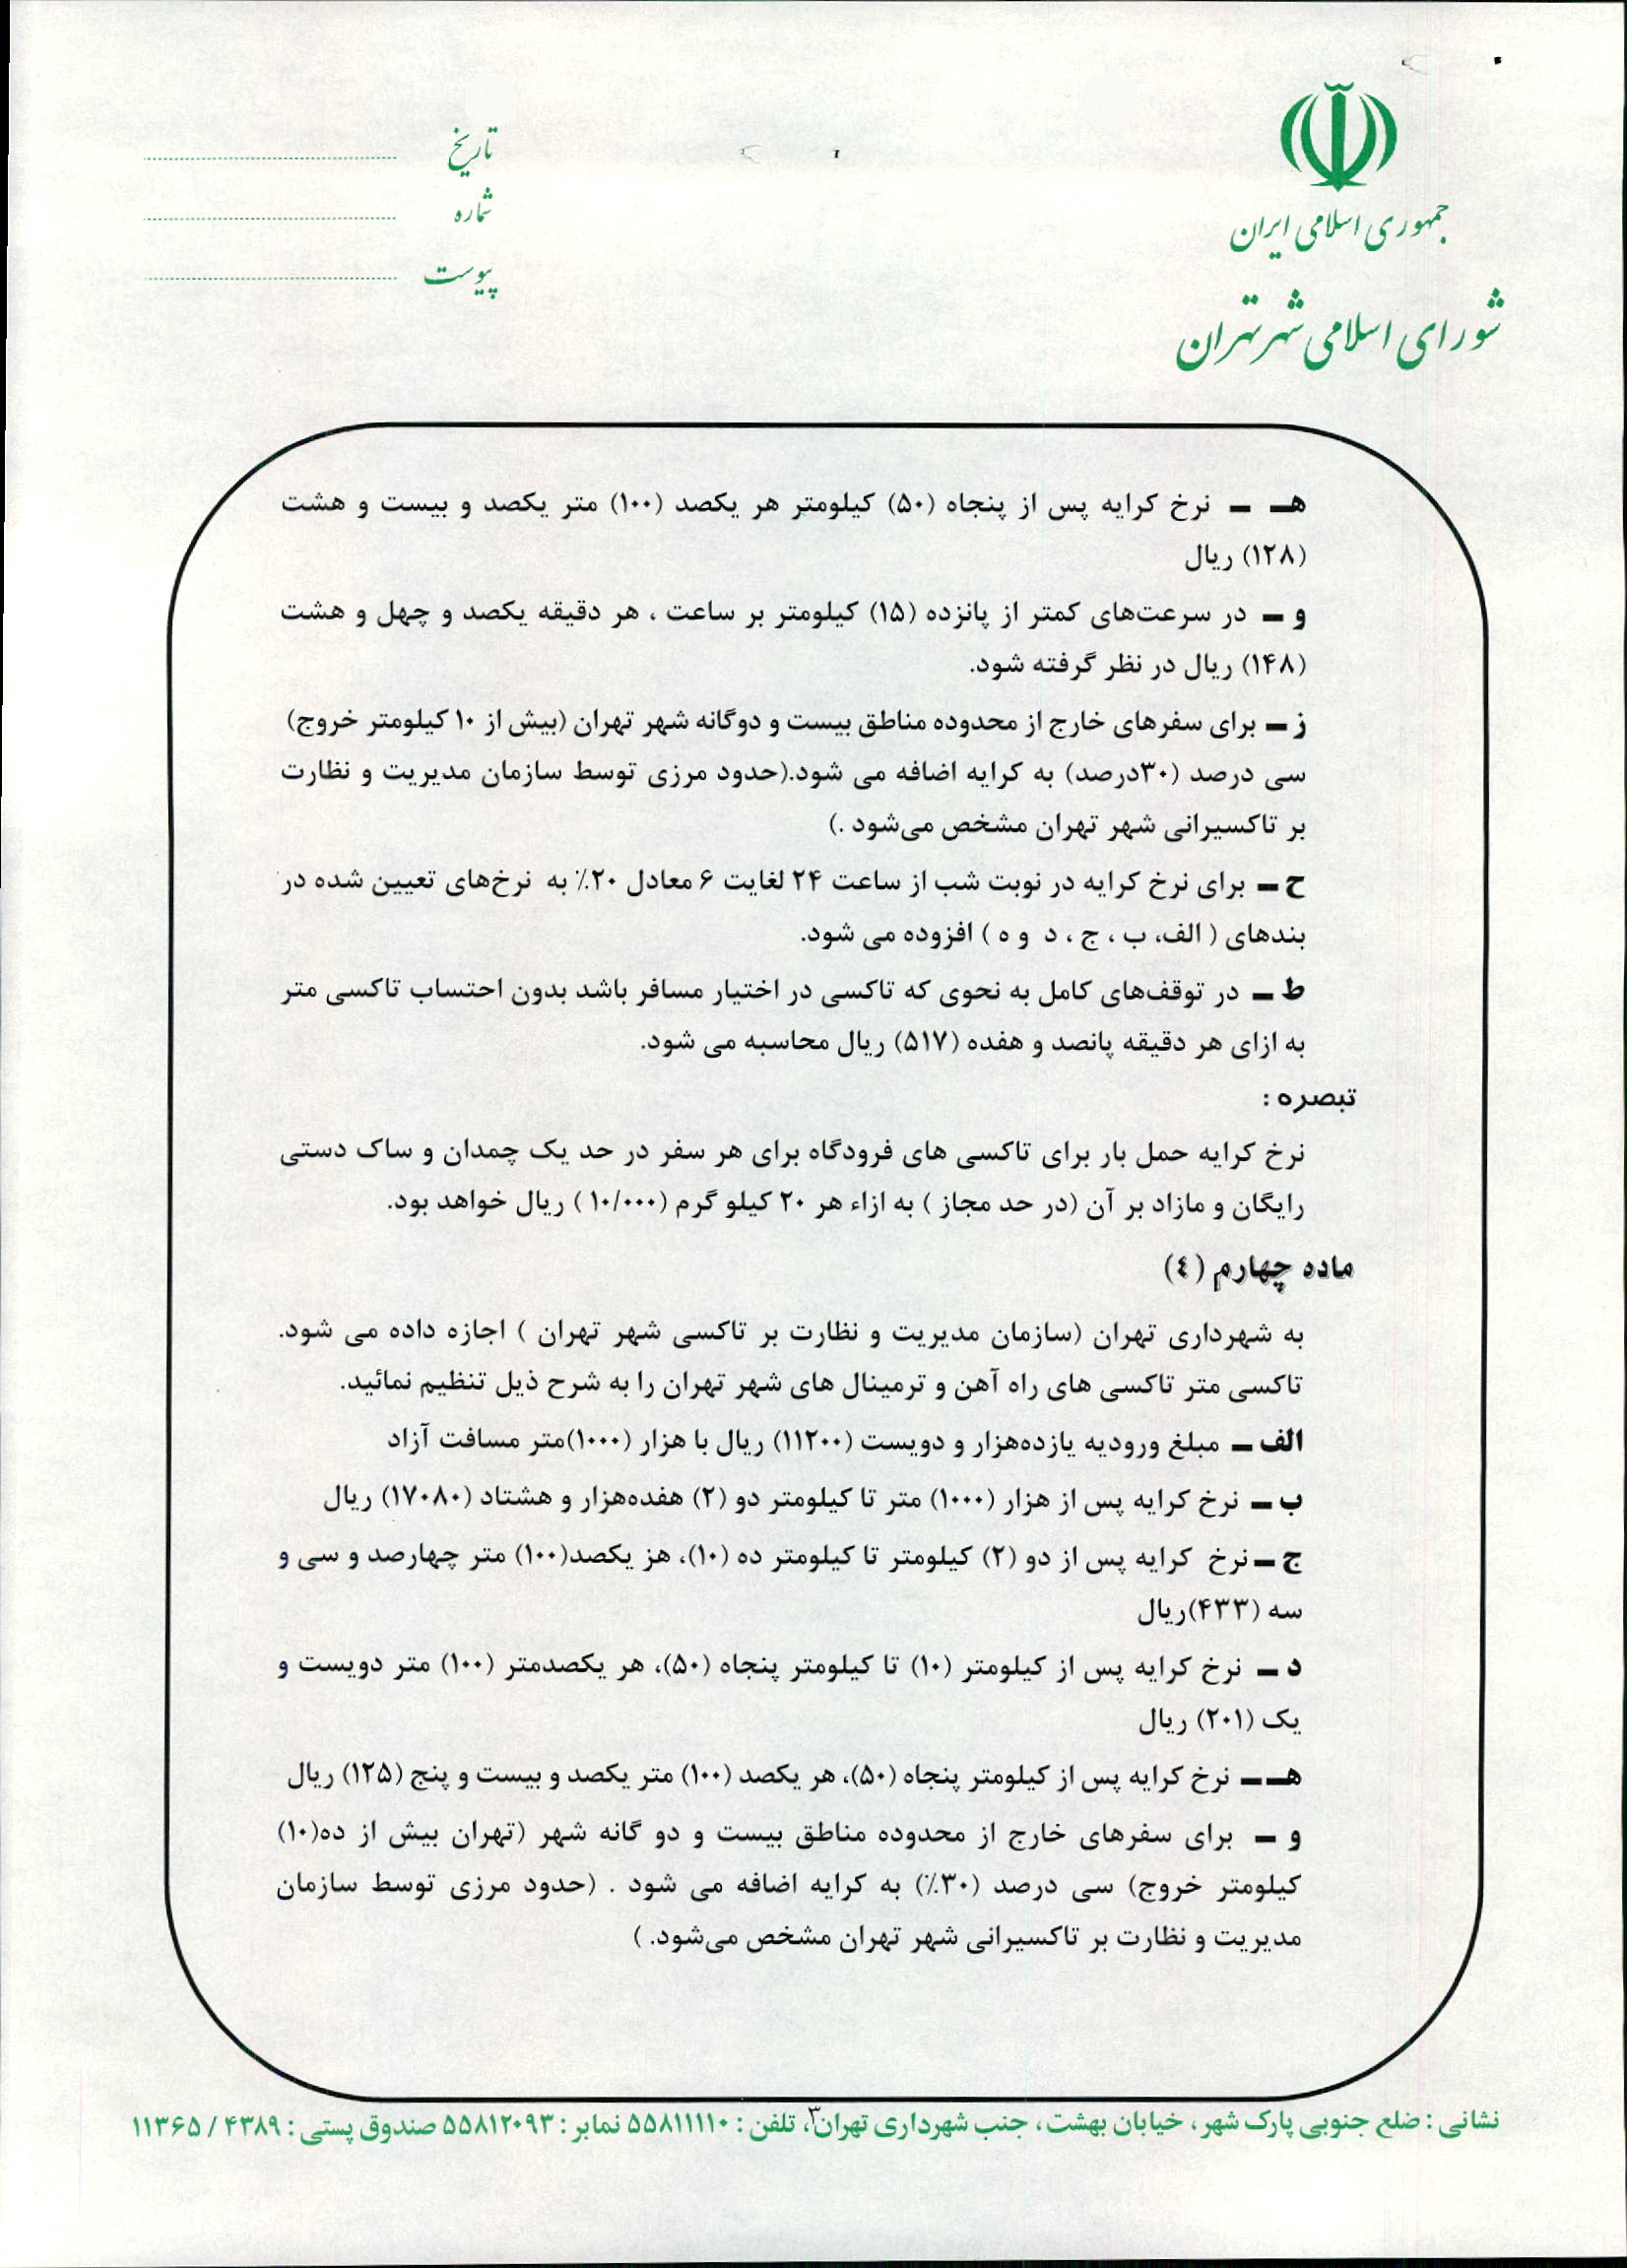 جمهوری اسلامی ایران
شورای اسلامی شهر تهران
تاریخ
شماره
پیوست
هـ ـ نرخ کرایه پس از پنجاه (۵۰) کیلومتر هر یکصد (۱۰۰) متر یکصد و بیست و هشت
(۱۲۸) ریال
و ـ در سرعت‌های کمتر از پانزده (۱۵) کیلومتر بر ساعت ، هر دقیقه یکصد و چهل و هشت
(۱۴۸) ریال در نظر گرفته شود.
ز ـ برای سفرهای خارج از محدوده مناطق بیست و دوگانه شهر تهران (بیش از ۱۰ کیلومتر خروج)
سی درصد (۳۰درصد) به کرایه اضافه می شود.(حدود مرزی توسط سازمان مدیریت و نظارت
بر تاکسیرانی شهر تهران مشخص می‌شود .)
ح ـ برای نرخ کرایه در نوبت شب از ساعت ۲۴ لغایت ۶ معادل ۲۰٪ به نرخ‌های تعیین شده در
بندهای ( الف، ب ، ج ، د و ه ) افزوده می شود.
ط ـ در توقف‌های کامل به نحوی که تاکسی در اختیار مسافر باشد بدون احتساب تاکسی متر
به ازای هر دقیقه پانصد و هفده (۵۱۷) ریال محاسبه می شود.
تبصره :
نرخ کرایه حمل بار برای تاکسی های فرودگاه برای هر سفر در حد یک چمدان و ساک دستی
رایگان و مازاد بر آن (در حد مجاز ) به ازاء هر ۲۰ کیلو گرم (۱۰/۰۰۰ ) ریال خواهد بود.
ماده چهارم (٤)
به شهرداری تهران (سازمان مدیریت و نظارت بر تاکسی شهر تهران ) اجازه داده می شود.
تاکسی متر تاکسی های راه آهن و ترمینال های شهر تهران را به شرح ذیل تنظیم نمائید.
الف ـ مبلغ ورودیه یازده‌هزار و دویست (۱۱۲۰۰) ریال با هزار (۱۰۰۰)متر مسافت آزاد
ب ـ نرخ کرایه پس از هزار (۱۰۰۰) متر تا کیلومتر دو (۲) هفده‌هزار و هشتاد (۱۷۰۸۰) ریال
ج ـ نرخ کرایه پس از دو (۲) کیلومتر تا کیلومتر ده (۱۰)، هز یکصد(۱۰۰) متر چهارصد و سی و
سه (۴۳۳)ریال
د ـ نرخ کرایه پس از کیلومتر (۱۰) تا کیلومتر پنجاه (۵۰)، هر یکصدمتر (۱۰۰) متر دویست و
یک (۲۰۱) ریال
هــ ـ نرخ کرایه پس از کیلومتر پنجاه (۵۰)، هر یکصد (۱۰۰) متر یکصد و بیست و پنج (۱۲۵) ریال
و ـ برای سفرهای خارج از محدوده مناطق بیست و دو گانه شهر (تهران بیش از ده(۱۰)
کیلومتر خروج) سی درصد (۳۰٪) به کرایه اضافه می شود . (حدود مرزی توسط سازمان
مدیریت و نظارت بر تاکسیرانی شهر تهران مشخص می‌شود. )
۳
نشانی : ضلع جنوبی پارک شهر ، خیابان بهشت ، جنب شهرداری تهران، تلفن : ۵۵۸۱۱۱۱۰ نمابر : ۵۵۸۱۲۰۹۳ صندوق پستی : ۴۳۸۹ / ۱۱۳۶۵